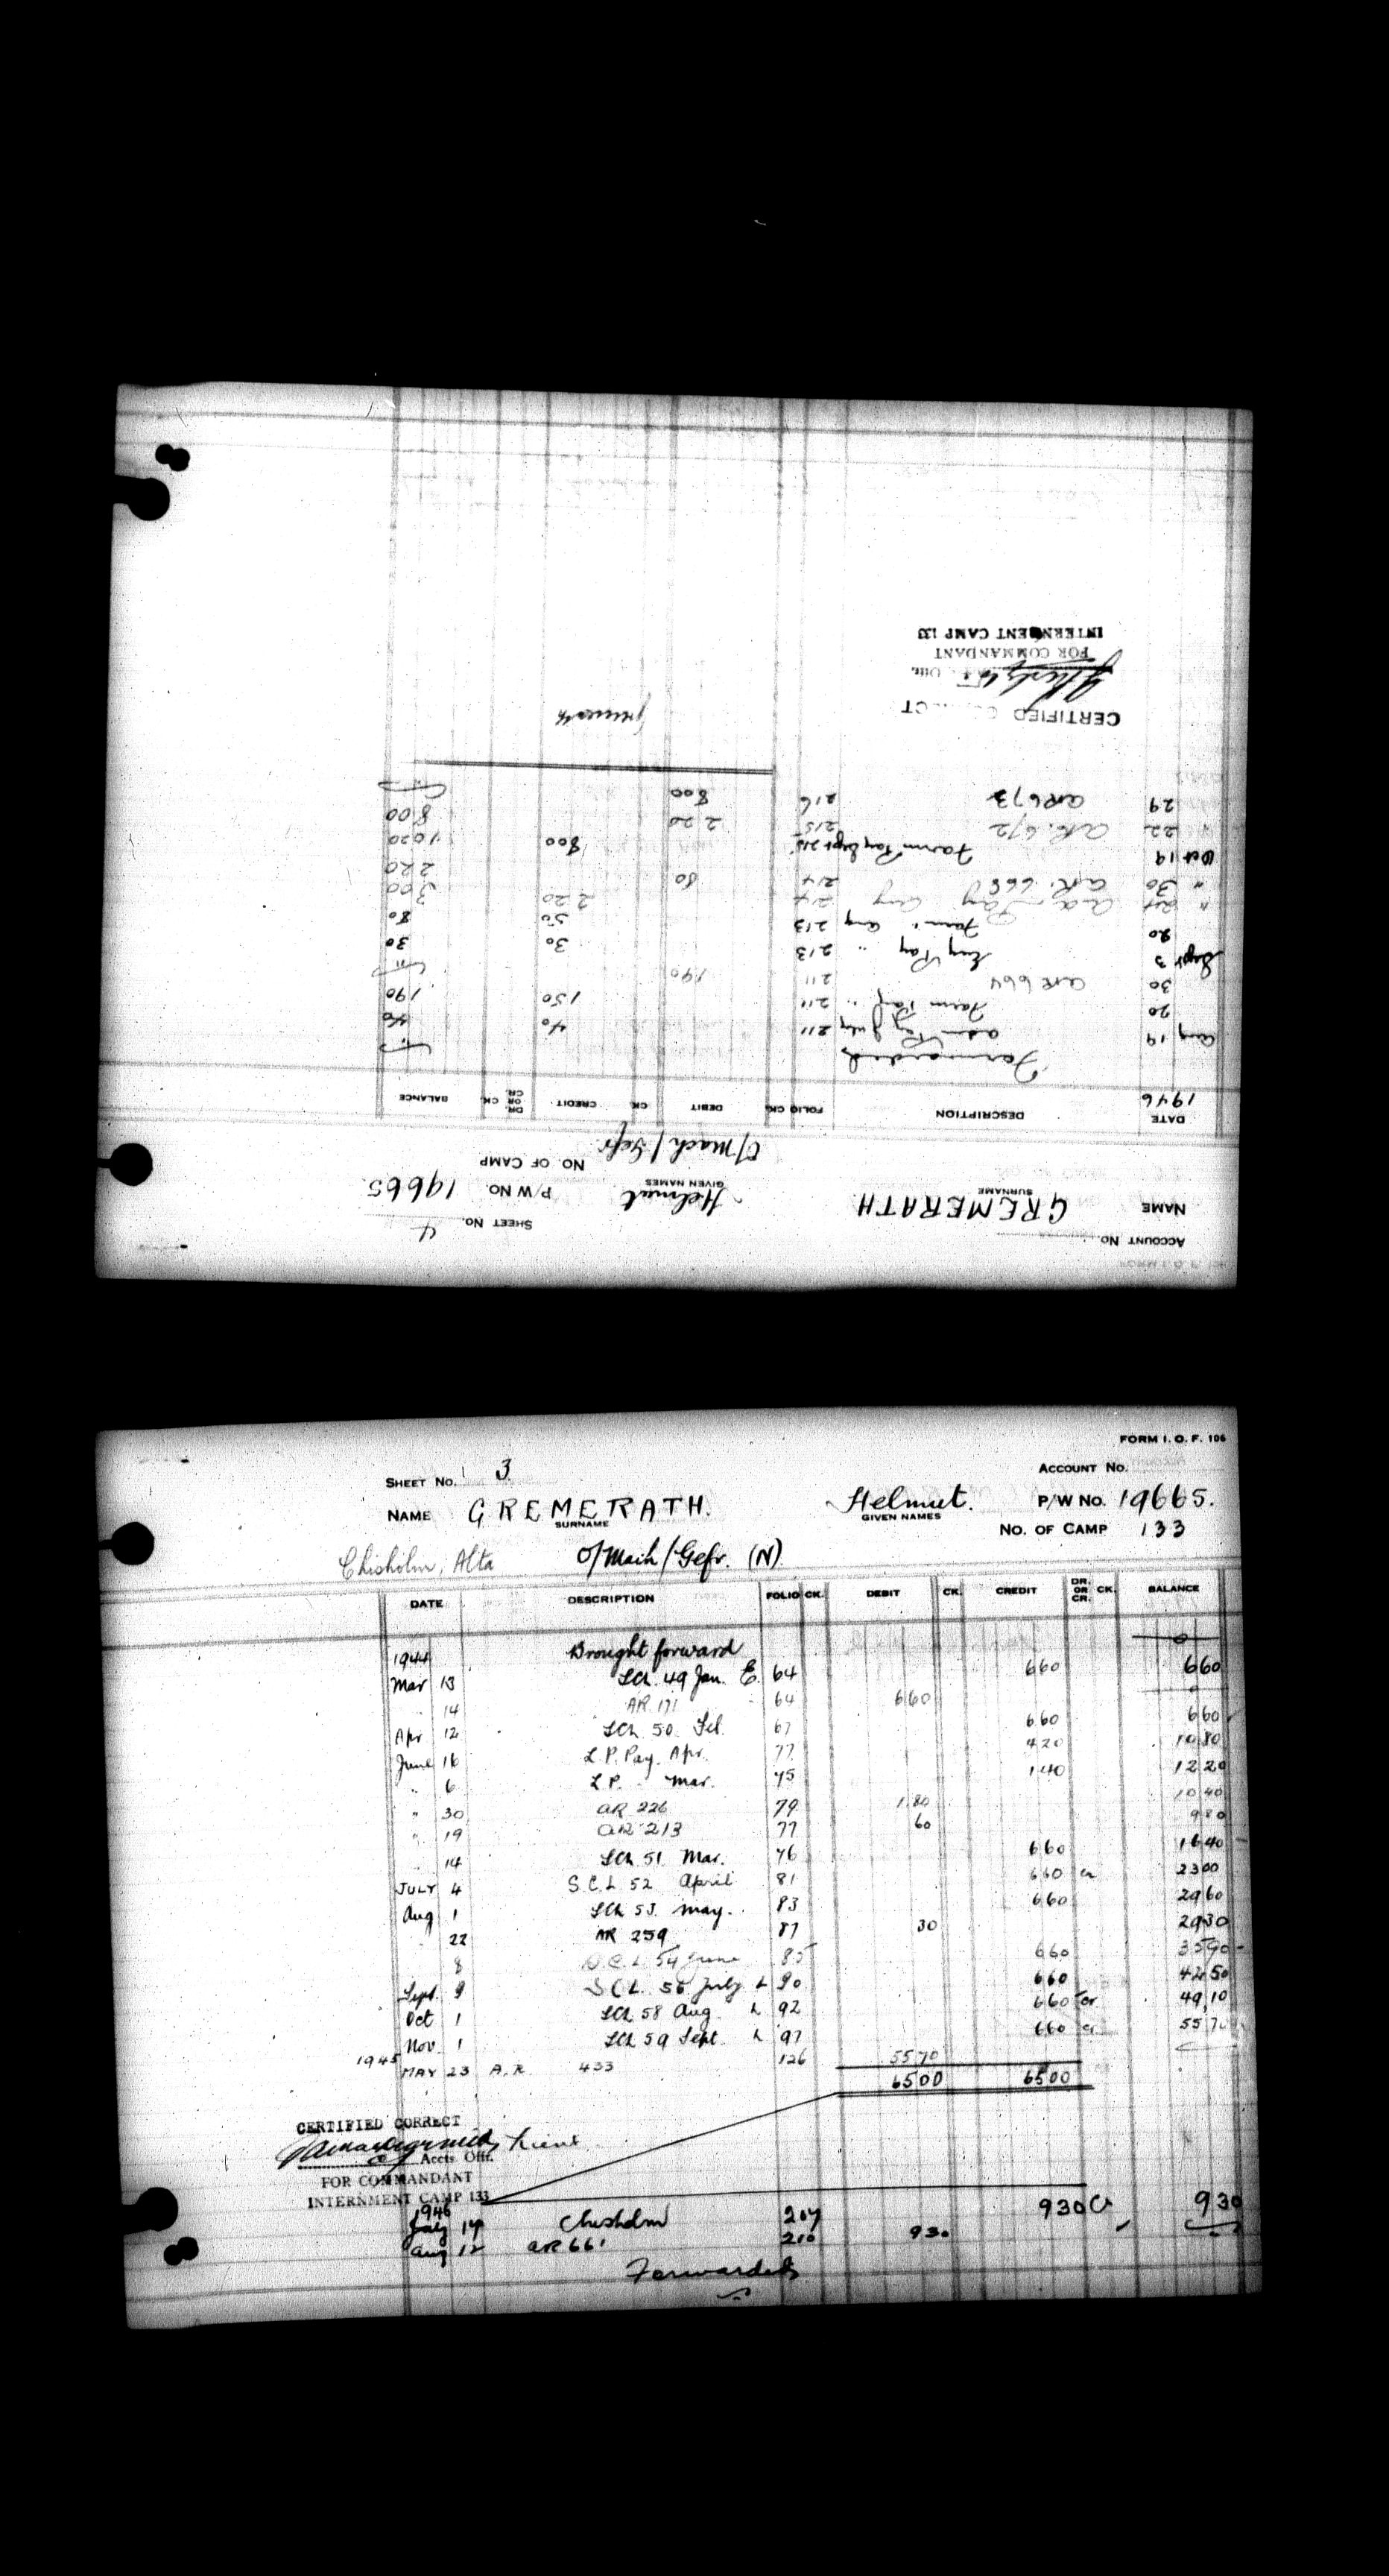 FORM I. O. F. 106
ACCOUNT No.
SHEET No. 4
NAME GREMERATH Helmut P/W NO. 19665
SURNAME GIVEN NAMES
NO. OF CAMP
O/Mach/Gefr
DATE DESCRIPTION FOLIO CK. DEBIT CK. CREDIT DR. OR CR. CK. BALANCE
1946
Forwarded
Aug 19 Pay July 211 40 40
20 Farm Pay " 211 150 190
30 AR 664 211 190
Sept 3 Pay " 213 30 30
20 Farm " Aug 213 50 80
" 24 Pay Aug 214 220 300
" 30 A.R. 668 214 80 220
Oct 19 Farm Pay Sept 215 800 1020
" 22 A.R. 672 215 220 800
29 AR 673 216 800
CERTIFIED CORRECT
Offr.
FOR COMMANDANT
INTERNMENT CAMP 133
Gremerath
FORM I. O. F. 106
SHEET No. 3 ACCOUNT No.
NAME GREMERATH. Helmut. P/W No. 19665.
SURNAME GIVEN NAMES
No. OF CAMP 133
Chisholm, Alta O/Mach/Gefr. (N)
DATE DESCRIPTION FOLIO CK. DEBIT CK. CREDIT DR. OR CR. CK. BALANCE
1944 Brought forward 0
Mar 13 SCL 49 Jan. E. 64 660 660
14 AR 171 64 660
Apr 12 SCL 50 Feb. 67 660 660
June 16 L.P. Pay. Apr. 77 420 1080
" 6 L.P. " Mar. 75 140 1220
" 30 AR 226 79 180 1040
" 19 AR 213 77 60 980
14 SCL 51 Mar. 76 660 1640
JULY 4 S.C.L 52 April 81 660 cr 2300
Aug 1 SCL 53. May. 83 660 2960
22 AR 259 87 30 2930
8 S.C.L. 54 June 85 660 3590
Sept. 9 SCL. 56 July L 90 660 4250
Oct 1 SCL 58 Aug L 92 660 cr 49,10
Nov. 1 SCL 59 Sept L 97 660 cr 5570
1945 MAY 23 A.R. 433 126 5570
6500 6500
CERTIFIED CORRECT
Accts. Offr.
FOR COMMANDANT
INTERNMENT CAMP 133
1946
July 19 Chisholm 207 930 Cr 930
Aug 12 AR 661 210 930
Forwarded